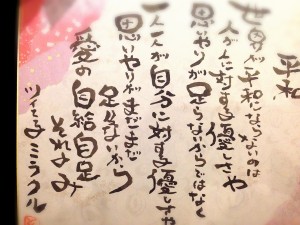 平和
世界が平和にならないのは
人が人に対する優しさや
思いやりが足らないからではなく
一人一人が自分に対する優しさや
思いやりがまだまだ
足らないから
愛の自給自足
それのみ
ツイてる ミラクル